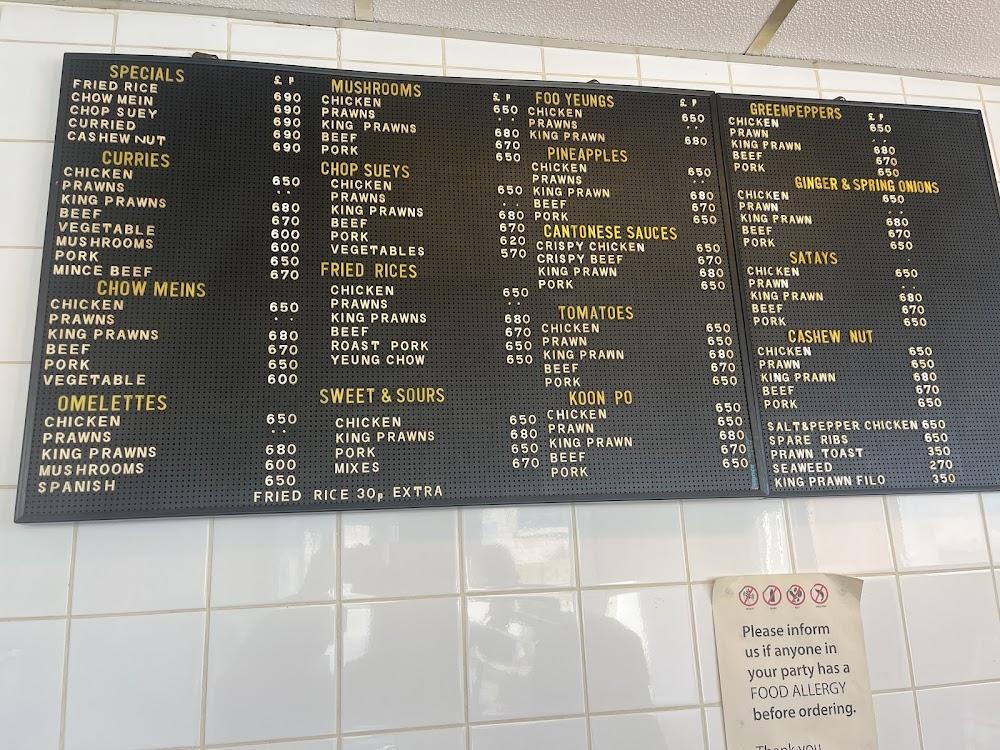 SPECIALS £ P
FRIED RICE 690
CHOW MEIN 690
CHOP SUEY 690
CURRIED 690
CASHEW NUT 690
CURRIES
CHICKEN 650
PRAWNS ..
KING PRAWNS 680
BEEF 670
VEGETABLE 600
MUSHROOMS 600
PORK 650
MINCE BEEF 670
CHOW MEINS
CHICKEN 650
PRAWNS ..
KING PRAWNS 680
BEEF 670
PORK 650
VEGETABLE 600
OMELETTES
CHICKEN 650
PRAWNS ..
KING PRAWNS 680
MUSHROOMS 600
SPANISH 650
MUSHROOMS £ P
CHICKEN 650
PRAWNS ..
KING PRAWNS 680
BEEF 670
PORK 650
CHOP SUEYS
CHICKEN 650
PRAWNS ..
KING PRAWNS 680
BEEF 670
PORK 620
VEGETABLES 570
FRIED RICES
CHICKEN 650
PRAWNS ..
KING PRAWNS 680
BEEF 670
ROAST PORK 650
YEUNG CHOW 650
SWEET & SOURS
CHICKEN 650
KING PRAWNS 680
PORK 650
MIXES 670
FRIED RICE 30p EXTRA
FOO YEUNGS £ P
CHICKEN 650
PRAWNS ..
KING PRAWN 680
PINEAPPLES
CHICKEN 650
PRAWNS ..
KING PRAWN 680
BEEF 670
PORK 650
CANTONESE SAUCES
CRISPY CHICKEN 650
CRISPY BEEF 670
KING PRAWN 680
PORK 650
TOMATOES
CHICKEN 650
PRAWN 650
KING PRAWN 680
BEEF 670
PORK 650
KOON PO
CHICKEN 650
PRAWN 650
KING PRAWN 680
BEEF 670
PORK 650
GREENPEPPERS £ P
CHICKEN 650
PRAWN ..
KING PRAWN 680
BEEF 670
PORK 650
GINGER & SPRING ONIONS
CHICKEN 650
PRAWN ..
KING PRAWN 680
BEEF 670
PORK 650
SATAYS
CHICKEN 650
PRAWN ..
KING PRAWN 680
BEEF 670
PORK 650
CASHEW NUT
CHICKEN 650
PRAWN 650
KING PRAWN 680
BEEF 670
PORK 650
SALT&PEPPER CHICKEN 650
SPARE RIBS 650
PRAWN TOAST 350
SEAWEED 270
KING PRAWN FILO 350
Please inform
us if anyone in
your party has a
FOOD ALLERGY
before ordering.
Thank you